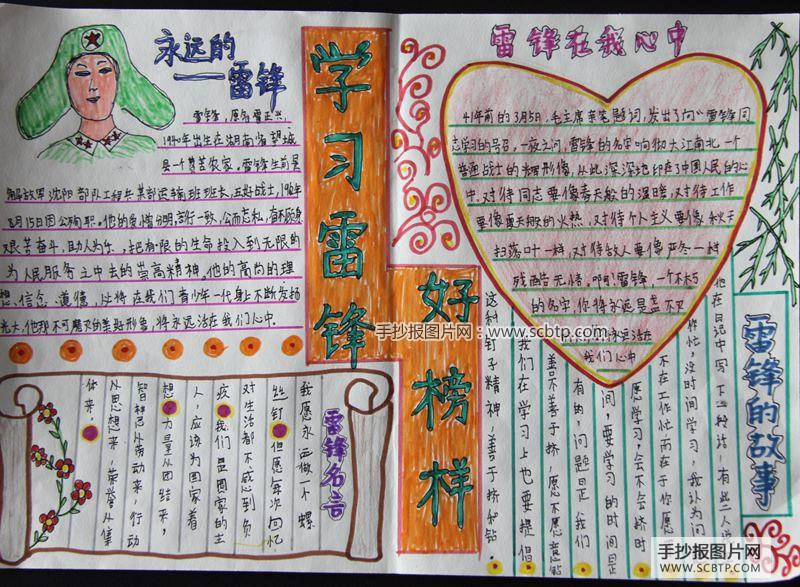 永远的
—雷锋
雷锋,原名雷正兴
1940年出生在湖南省望城
县一个贫苦农家,雷锋生前是
解放军沈阳部队工程兵某部运输班班长,五好战士,1962年
8月15日因公殉职,他的爱憎分明,言行一致,公而忘私,奋不顾身
艰苦奋斗,助人为乐,把有限的生命投入到无限的
为人民服务之中去的崇高精神,他的高尚的理
想、信念、道德,必将在我们青少年一代身上不断发扬
光大,他那不可磨灭的美好形象,将永远活在我们心中.
学习雷锋
好榜样
雷锋在我心中
41年前的3月5日,毛主席亲笔题词,发出了向“雷锋同
志学习的号召,一夜之间,雷锋的名字响彻大江南北,一个
普通战士的光辉形像,从此深深地印在了中国人民的心
中.对待同志要像春天般的温暖,对待工作
要像夏天般的火热,对待个人主义要像秋天
扫落叶一样,对待敌人要像严冬一样
残酷无情,啊!雷锋,一个不朽
的名字,你将永远是盖不灭
永远活在
我们心中
雷锋名言
我愿永远做一个螺
丝钉,但愿每次回忆
对生活都不感到负
疚,我们是国家的主
人,应该为国家着
想,力量从团结来,
智慧从劳动来,行动
从思想来,荣誉从集
体来,
雷锋的故事
他在日记中写下一种话,有些人说
忙,没时间学习,我认为问
不在工作忙,而在于你愿
愿学习,会不会挤时
间,要学习的时间是
有的,问题是我们
善不善于挤,愿不愿意钻
我们在学习上也要提倡
这种钉子精神,善于挤和钻.
手抄报图片网:www.scbtp.com
手抄报图片网
WWW.SCBTP.COM